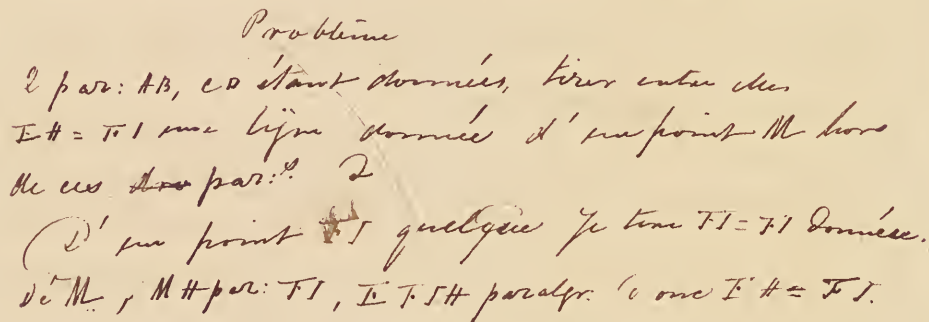 Problême
2 par: AB, CD étant données, tirer entre elles
EH = FI une ligne donnée d'un point M hors
de ces par:s. 2
(D'un point I quelque je tire FI = FI donnée.
De M, MH par: FI, EFIH paralgr. donc EH = FI.